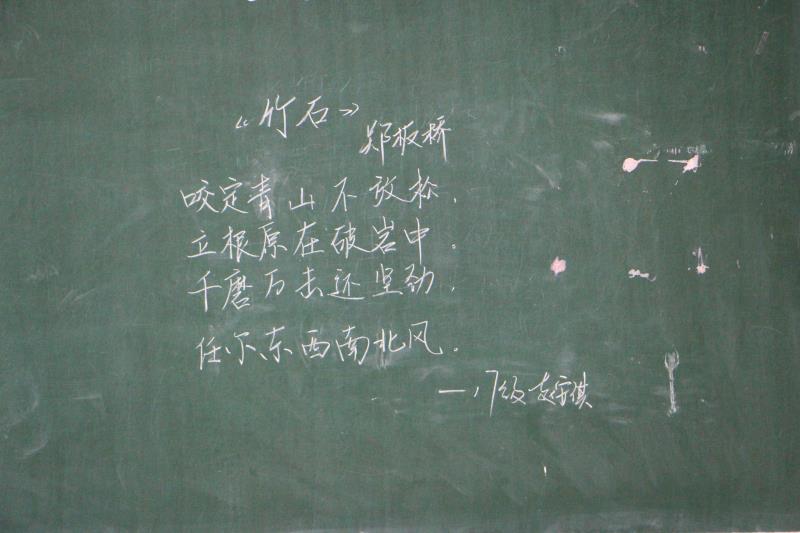 《竹石》
郑板桥
咬定青山不放松,
立根原在破岩中。
千磨万击还坚劲,
任尔东西南北风.